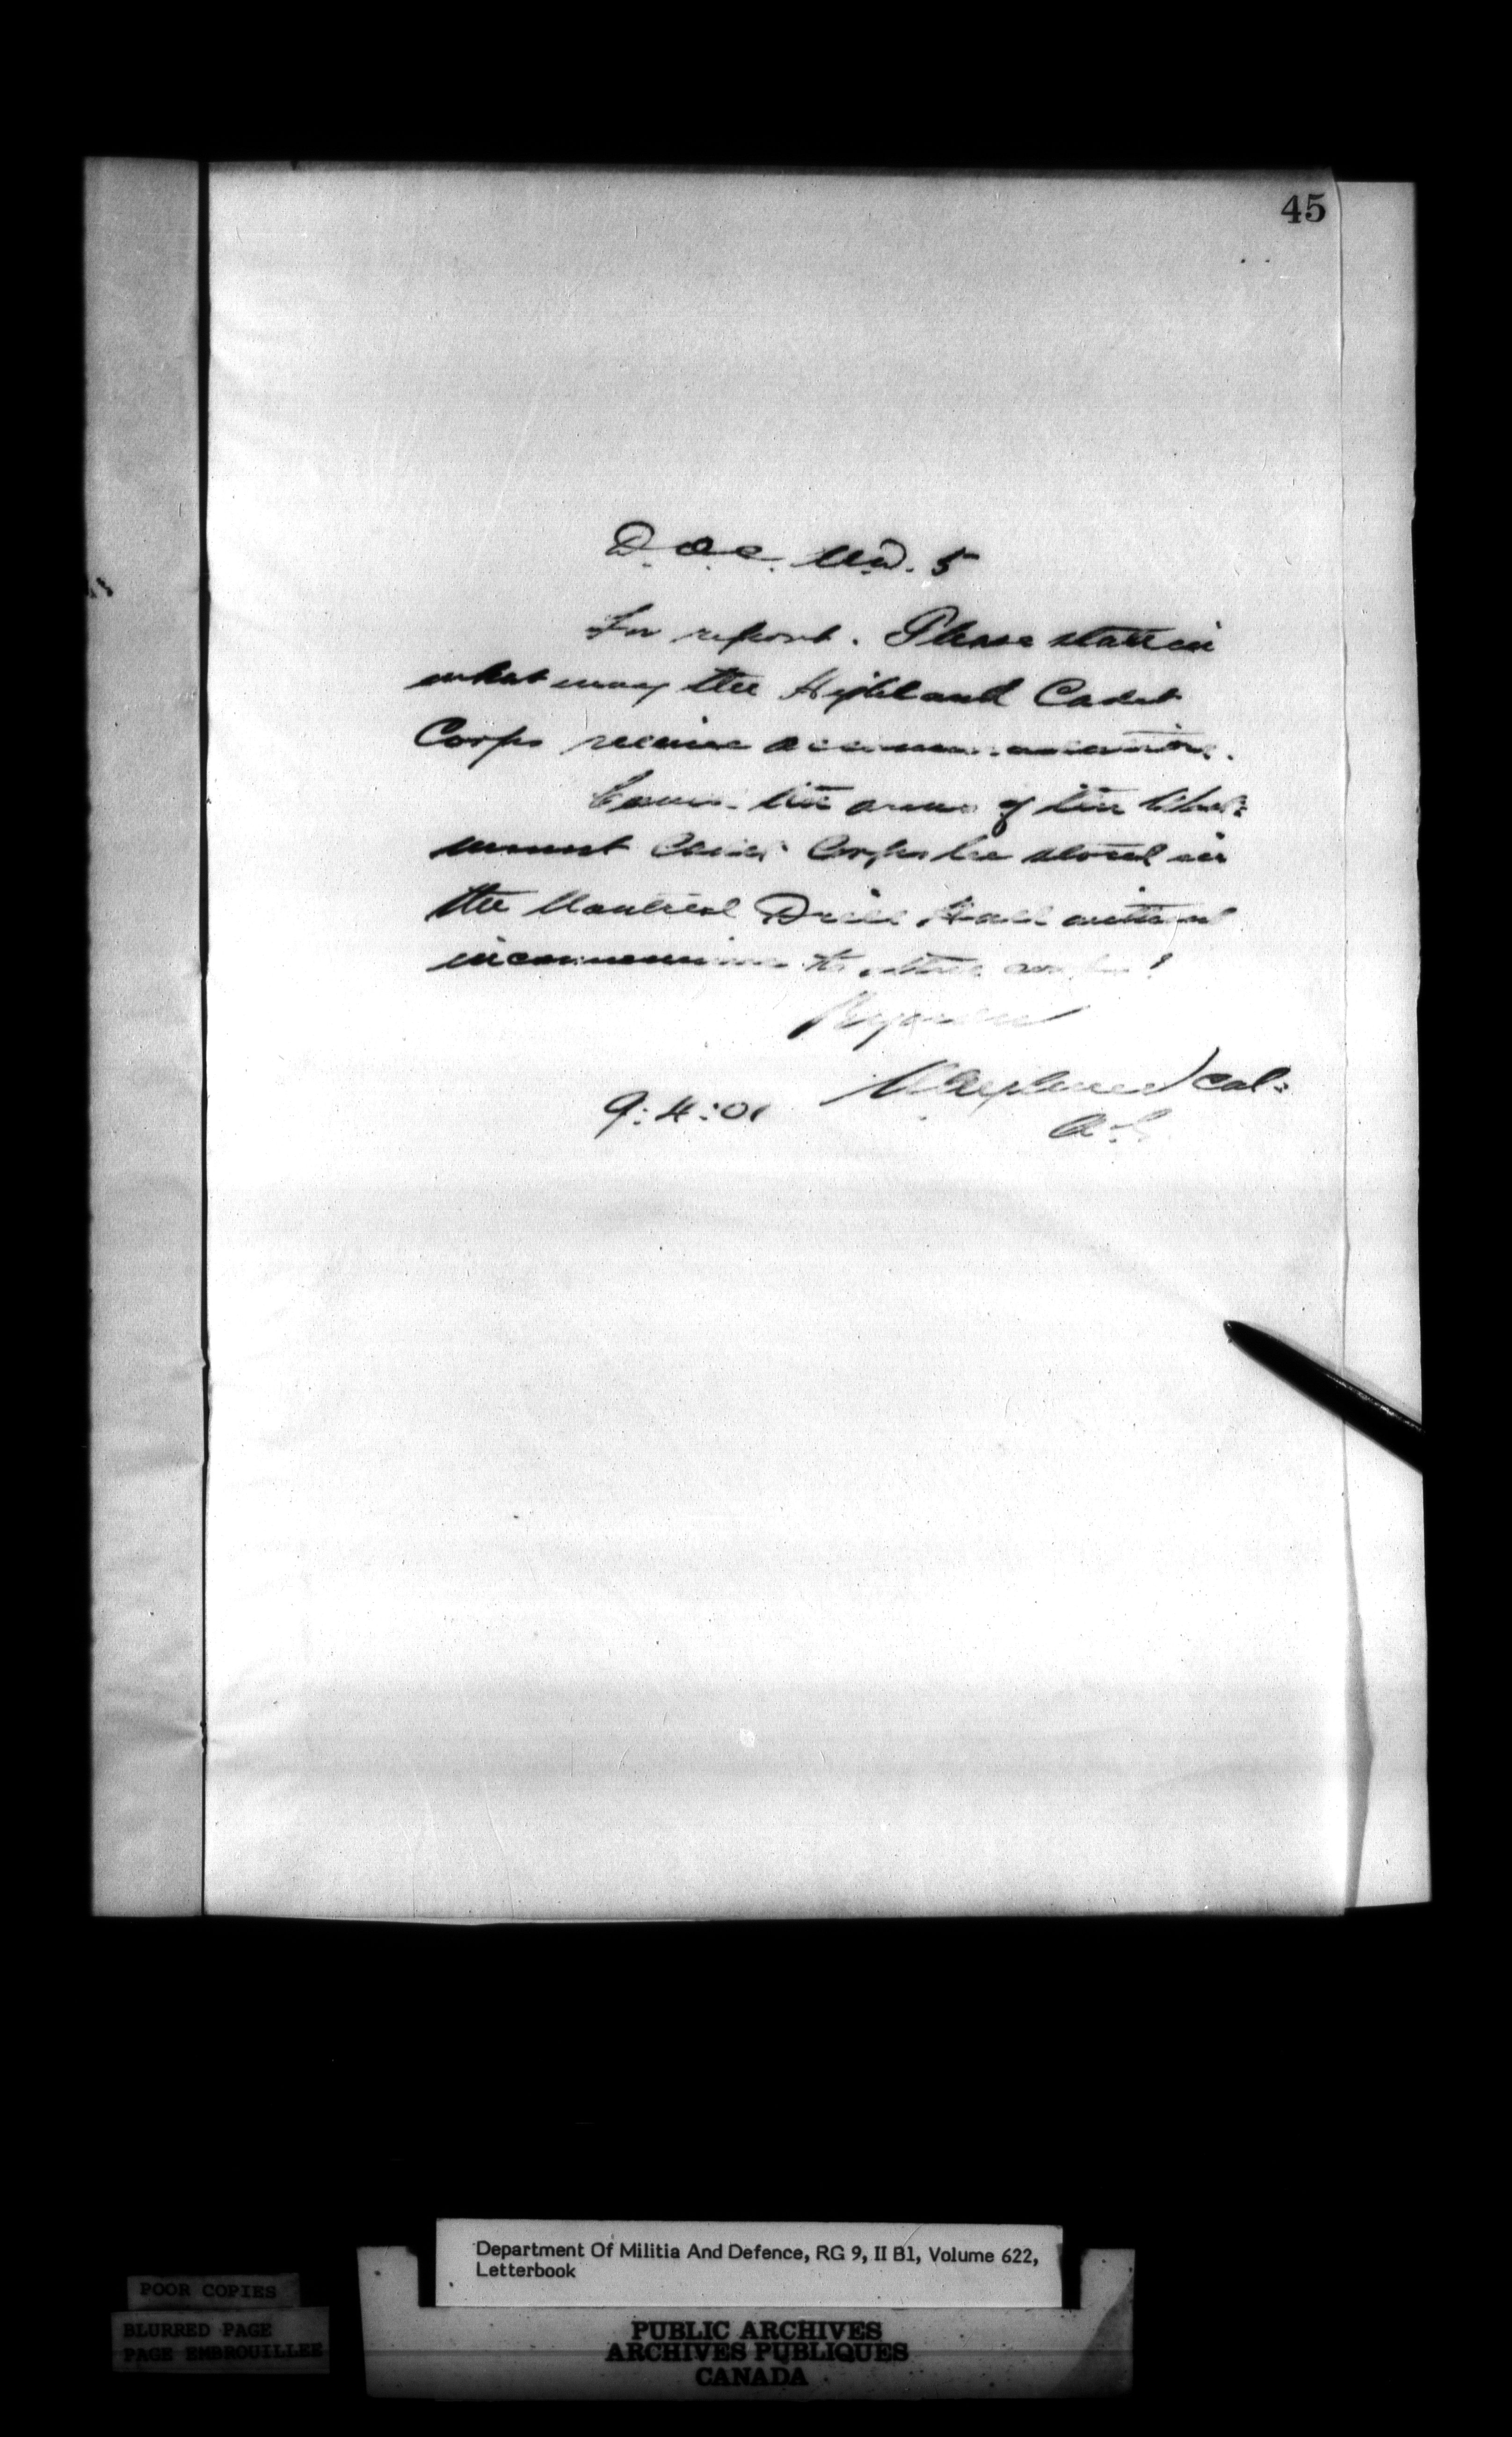 45
D.O.C. M.D. 5
For report. Please state in
what way the Highland Cadet
Corps receive accommodation.
the arms of the
Corps be stored in
the Montreal Drill Hall without
inconvenience to other corps?
Col:
9:4:01
Department Of Militia And Defence, RG 9, II B1, Volume 622,
Letterbook
POOR COPIES
BLURRED PAGE
PAGE EMBROUILLEE
PUBLIC ARCHIVES
ARCHIVES PUBLIQUES
CANADA